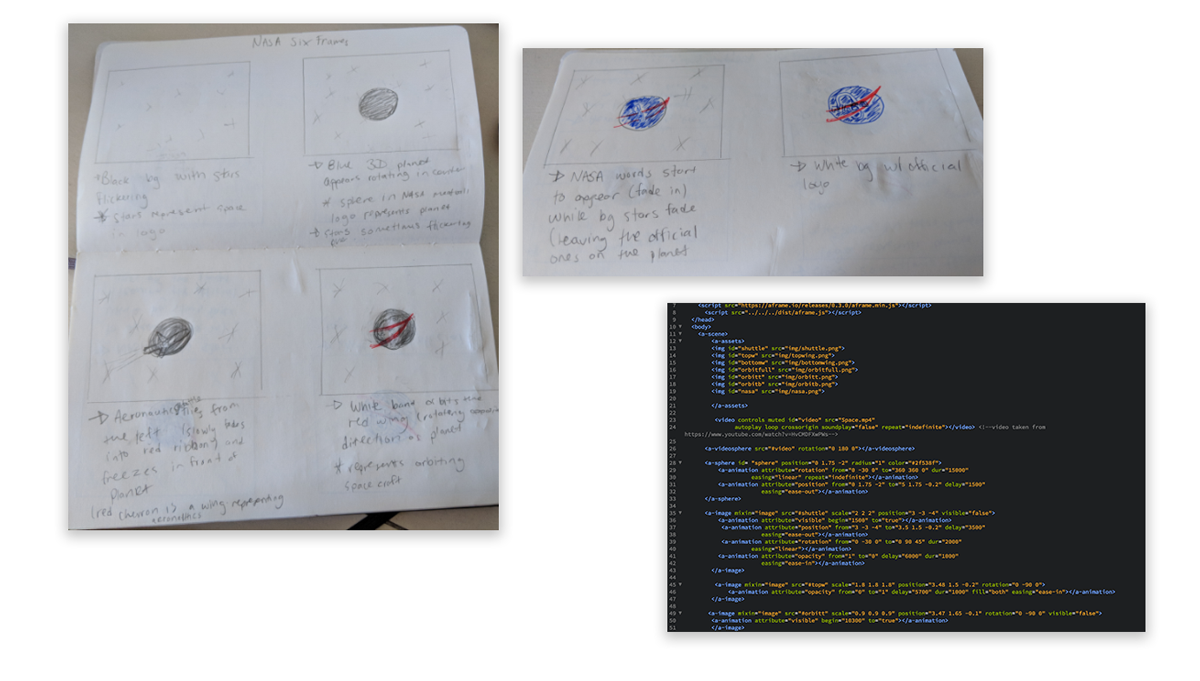 NASA Six Frames
Black bg with stars
flickering
* Stars represent space
in logo
→ Blue 3D planet
appears rotating in
* sphere in NASA meatball
logo represents planet
→ Stars sometimes flickering
→ Aeronautics flies from
the left (slowly
into red ribbon) and
freezes in front of
planet
(red chevron is a wing representing
aeronautics
→ White band orbits the
red wing (rotating
direction as planet
* represents orbiting
space craft
→ NASA words start
to appear (fade in)
while bg stars fade
(leaving the official
ones on the planet
→ White bg w/ official
logo
7 <script src="https://aframe.io/releases/0.3.0/aframe.min.js"></script>
8 <script src="../../../dist/aframe.js"></script>
9 </head>
10 <body>
11 <a-scene>
12 <a-assets>
13 <img id="shuttle" src="img/shuttle.png">
14 <img id="topw" src="img/topwing.png">
15 <img id="bottomw" src="img/bottomwing.png">
16 <img id="orbitfull" src="img/orbitfull.png">
17 <img id="orbitt" src="img/orbitt.png">
18 <img id="orbitb" src="img/orbitb.png">
19 <img id="nasa" src="img/nasa.png">
20
21 </a-assets>
22
23 <video controls muted id="video" src="Space.mp4"
24 autoplay loop crossorigin soundplay="false" repeat="indefinite"></video> <!--video taken from
https://www.youtube.com/watch?v=HvCMDFXwPWs-->
25
26 <a-videosphere src="#video" rotation="0 180 0"></a-videosphere>
27
28 <a-sphere id= "sphere" position="0 1.75 -2" radius="1" color="#2f538f">
29 <a-animation attribute="rotation" from="0 -30 0" to="360 360 0" dur="15000"
30 easing="linear" repeat="indefinite"></a-animation>
31 <a-animation attribute="position" from="0 1.75 -2" to="5 1.75 -0.2" delay="1500"
32 easing="ease-out"></a-animation>
33 </a-sphere>
34
35 <a-image mixin="image" src="#shuttle" scale="2 2 2" position="3 -3 -4" visible="false">
36 <a-animation attribute="visible" begin="1500" to="true"></a-animation>
37 <a-animation attribute="position" from="3 -3 -4" to="3.5 1.5 -0.2" delay="3500"
38 easing="ease-out"></a-animation>
39 <a-animation attribute="rotation" from="0 -30 0" to="0 90 45" dur="2000"
40 easing="linear"></a-animation>
41 <a-animation attribute="opacity" from="1" to="0" delay="6000" dur="1000"
42 easing="ease-in"></a-animation>
43 </a-image>
44
45 <a-image mixin="image" src="#topw" scale="1.8 1.8 1.8" position="3.48 1.5 -0.2" rotation="0 -90 0">
46 <a-animation attribute="opacity" from="0" to="1" delay="5700" dur="1000" fill="both" easing="ease-in"></a-animation>
47 </a-image>
48
49 <a-image mixin="image" src="#orbitt" scale="0.9 0.9 0.9" position="3.47 1.65 -0.1" rotation="0 -90 0" visible="false">
50 <a-animation attribute="visible" begin="10300" to="true"></a-animation>
51 </a-image>